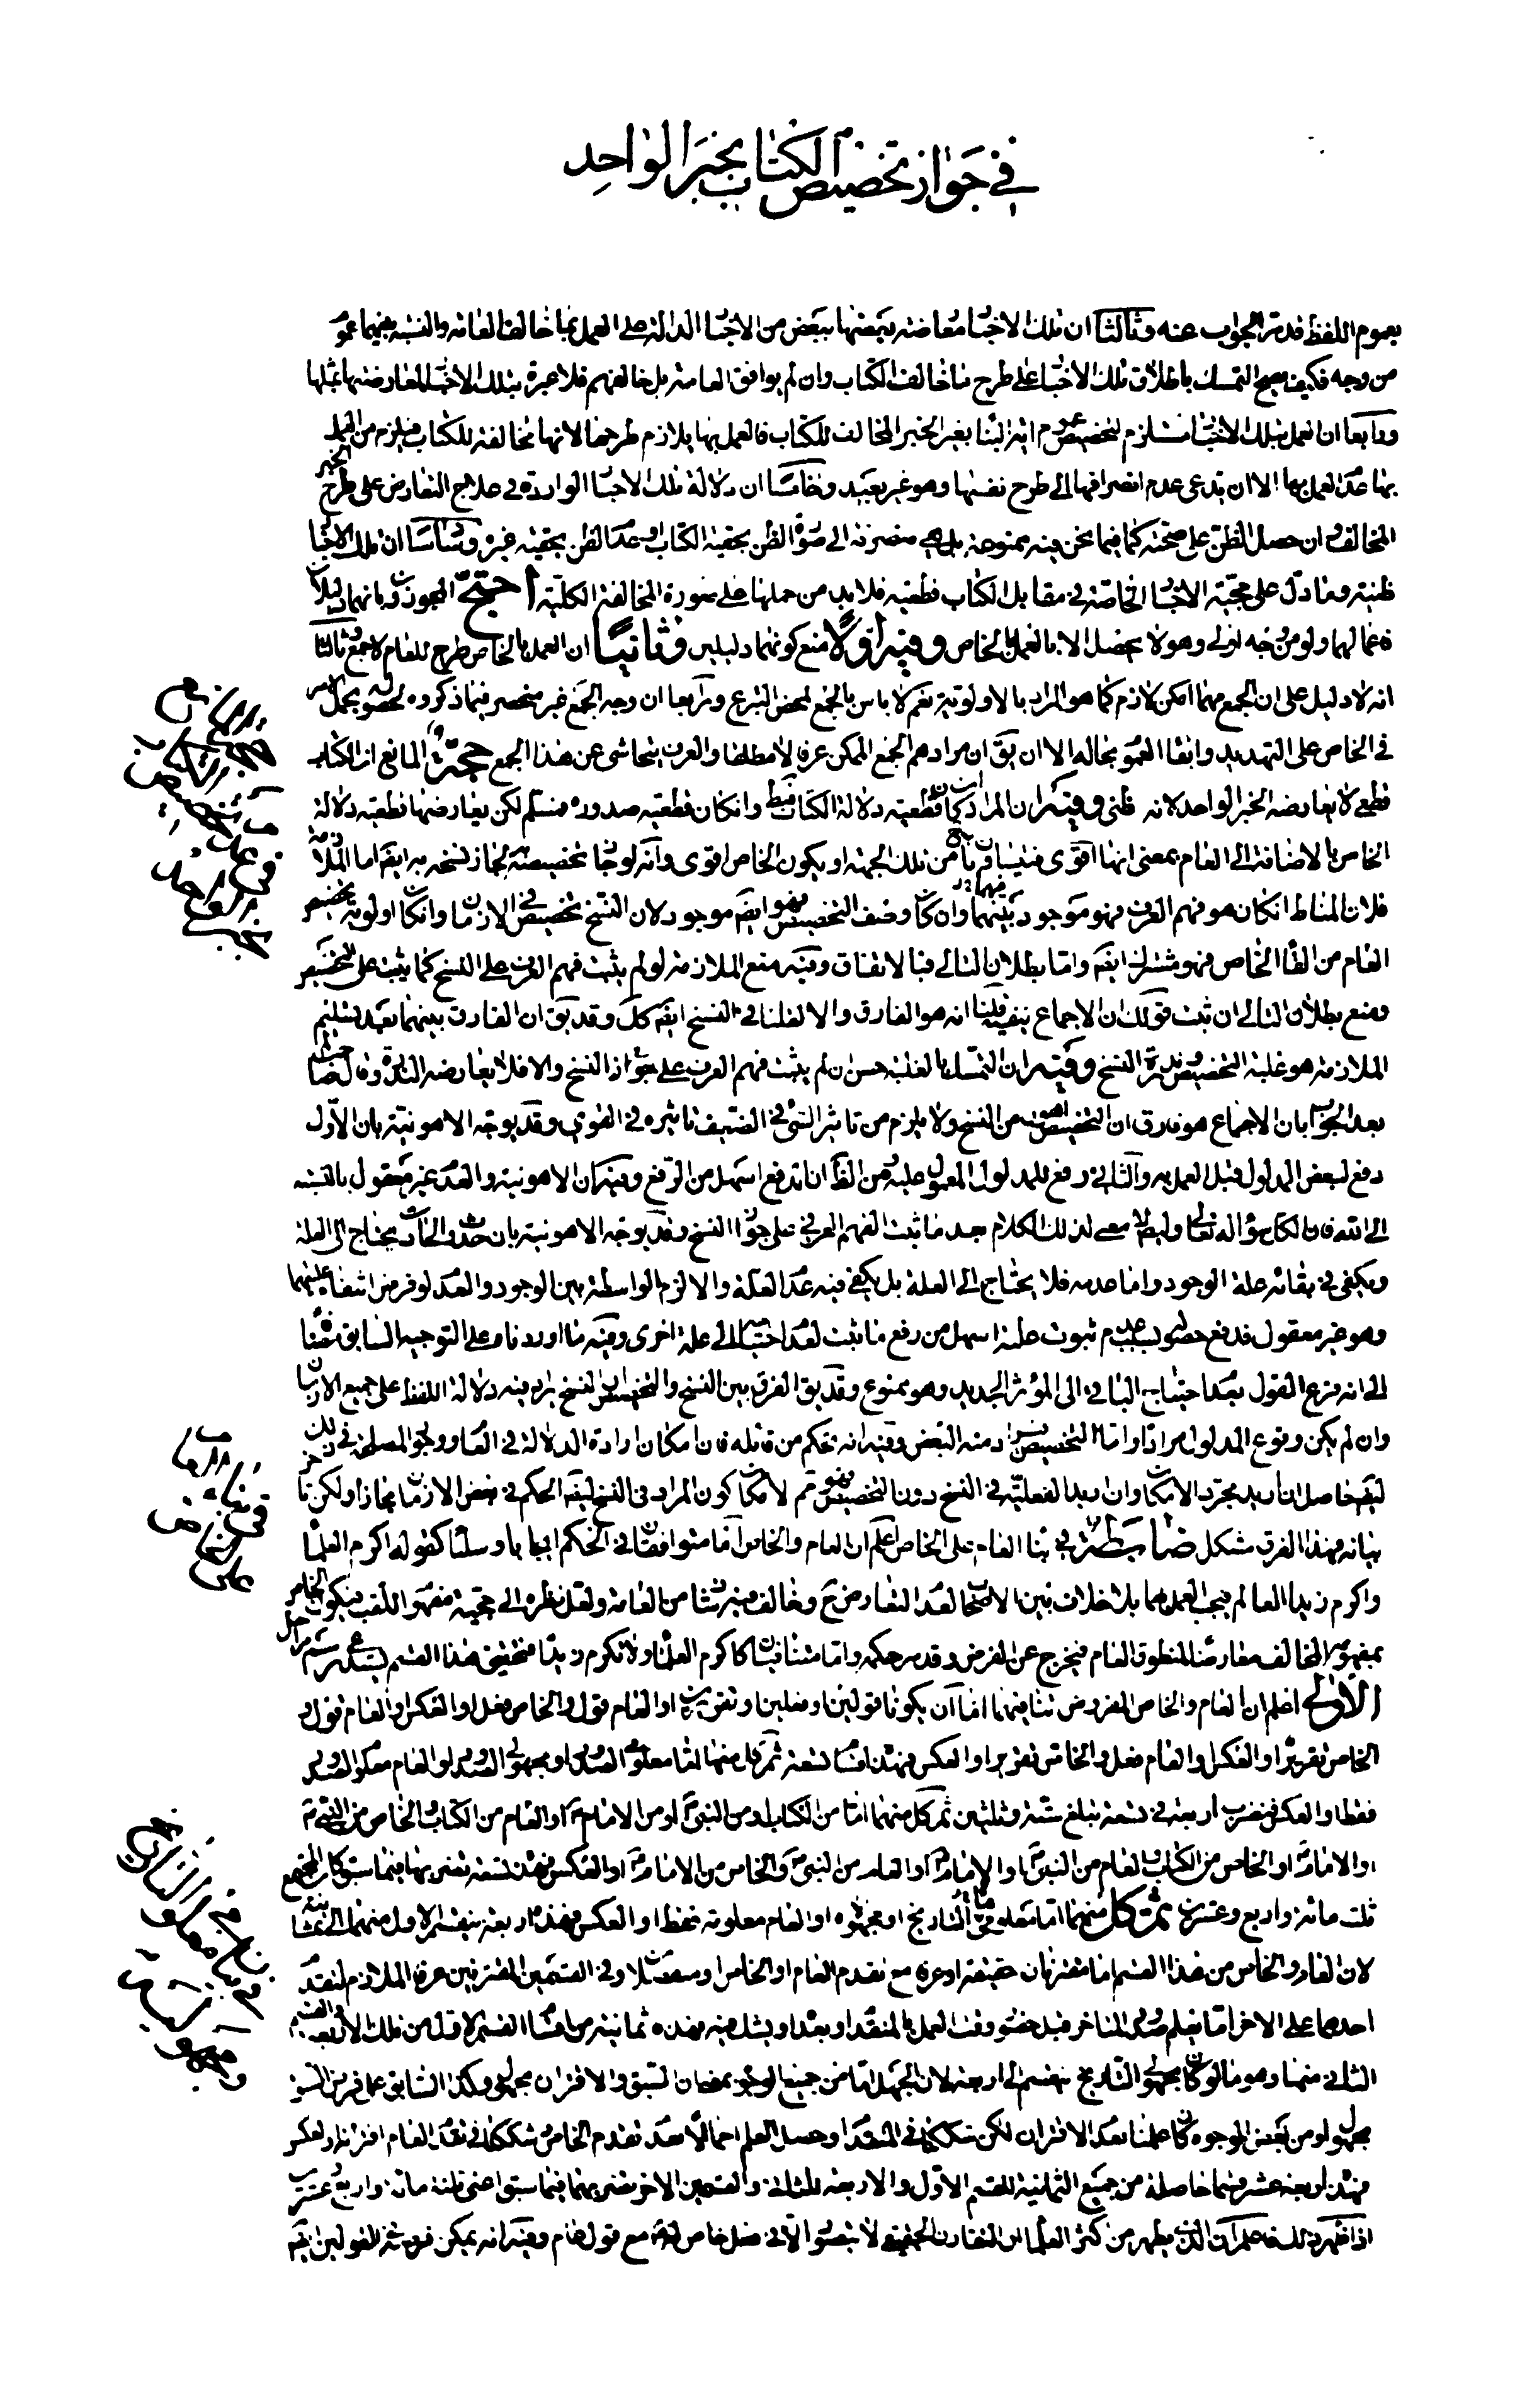 في جواز تخصيص الكتاب بخبر الواحد
بعموم اللفظ قد مر الجواب عنه وثالثا ان تلك الاخبار معارضة بعضها ببعض من الاخبار الدالة على العمل بما خالف العامة والنسبة بينهما عموم
من وجه فكيف يصح التمسك باطلاق تلك الاخبار على طرح ما خالف الكتاب وان لم يوافق العامة بل خالفهم فلا عبرة بتلك الاخبار لمعارضتها بمثلها
ورابعا ان العمل بتلك الاخبار مستلزم لتخصيص عموم اية بغير الخبر المخالف للكتاب فالعمل بها يلازم طرحها لانها مخالفة للكتاب فيلزم من العمل
بها عدم العمل بها الا ان تدعى عدم انصرافها الى طرح نفسها وهو غير بعيد وخامسا ان دلالة تلك الاخبار الواردة في علاج التعارض على طرح الخبر
المخالف وان حصل الظن على صحته كما فيما نحن فيه ممنوعة بل هي منصرفة الى صورة الظن بحقية الكتاب وعدم الظن بحقية غيره وسادسا ان تلك الاخبار
ظنية وما دل على حجية الاخبار الخاصة في مقابل الكتاب قطعية فلا بد من حملها على صورة المخالفة الكلية احتج المجوزون بانهما دليلان
فاعمالهما ولو من وجه اولى وهو لا يحصل الا بالعمل بالخاص وفيه اولا منع كونهما دليلين وثانيا ان العمل بالخاص طرح للعام لا جمع وثالثا
انه لا دليل على ان الجمع مهما امكن لازم كما هو المراد بالاولوية نعم لا باس بالجمع لمحض التبرع ورابعا ان وجه الجمع غير منحصر فيما ذكروه لحصوله بحمل الامر
في الخاص على التهديد وابقاء العموم بحاله الا ان يق ان مرادهم الجمع الممكن عرفا لا مطلقا والعرف يتحاشى عن هذا الجمع حجة المانع ان الكتاب
قطعي لا يعارضه الخبر الواحد لانه ظني وفيه ان المراد قطعية دلالة الكتاب فقط وان كان قطعية صدوره فمسلم لكن يعارضها قطعية دلالة
الخاص بالاضافة الى العام بمعنى انها اقوى من تلك الجهة او يكون الخاص اقوى وانه لو جاز تخصيصه لجاز نسخه به ايض اما الملازمة
فلان المناط ان كان هو فهم العرف فهو موجود فيهما وان كان وصف التخصيص فهو ايض موجود لان النسخ تخصيص في الازمان وان كان اولوية تخصيص
العام من الغاء الخاص فهو مشترك ايض واما بطلان التالي فبالاتفاق وفيه منع الملازمة لو لم يثبت فهم العرف على النسخ كما يثبت على التخصيص
ومنع بطلان التالي ان ثبت قولك ان الاجماع ينفيه قلنا انه هو الفارق والا لقلنا في النسخ ايض كك وقد يق ان الفارق بينهما بعد تسليم
الملازمة هو غلبة التخصيص وندرة النسخ وفيه ان التمسك بالغلبة حسن ان لم يثبت فهم العرف على جواز النسخ والا فلا يعارضه الندرة وقال
بعد الجواب بان الاجماع هو فارق ان التخصيص اهون من النسخ ولا يلزم من تاثير الشئ في الضعيف تاثيره في القوي وقد يوجه الاهونية بان الاول
دفع لبعض المدلول قبل العمل به والثاني رفع للمدلول المعمول عليه ومن الظ ان الدفع اسهل من الرفع وفيه ان الاهونية والعدم غير معقول بالنسبة
الى الله
ويكفي في بقائه علة الوجود واما عدمه فلا يحتاج الى العلة بل يكفي فيه عدم العلة والا لزم الواسطة بين الوجود والعدم لو فرض انتفاء علتيهما
وهو غير معقول فدفع حصوله بسبب عدم ثبوت علته اسهل من رفع ما ثبت لعدم احتياجه الى علة اخرى وفيه ما اوردناه على التوجيه السابق مضافا
الى انه فرع القول بعدم احتياج الباقي الى المؤثر الجديد وهو ممنوع وقد يق الفرق بين النسخ والتخصيص ان النسخ يراد فيه دلالة اللفظ على جميع الازمان
وان لم يكن وقوع المدلول مرادا واما التخصيص فيراد منه البعض وفيه انه تحكم من قائله فان امكان ارادة الدلالة في العام ووجود المصلحة في ذلك
ايض حاصل ان اريد مجرد الامكان وان اريد الفعلية في النسخ دون التخصيص فهو مم لامكان كون المراد في النسخ ايض الحكم في بعض الازمان مجازا ولكن
بيانه بهذا الفرق مشكل ضابطة في بناء العام على الخاص اعلم ان العام والخاص اما متوافقان في الحكم ايجابا وسلبا كقوله اكرم العلماء
واكرم زيدا العالم فيجب العمل بهما بلا خلاف بين الاصحاب لعدم التعارض وخالف فيه شاذ من العامة ولعل نظره الى حجية مفهوم اللقب فيكون الخاص
بمفهومه المخالف معارضا لمنطوق العام فيخرج عن الفرض وقد مر حكمه واما متنافيان كاكرم العلماء ولا تكرم زيدا فتحقيق هذا القسم يستدعي رسم مراحل
الاولى اعلم ان العام والخاص المفروض تنافيهما اما ان يكونا قولين او فعلين او تقريرين او العام قول والخاص فعل او العكس او العام قول و
الخاص تقرير او العكس او العام فعل والخاص تقرير او العكس فهذه اقسام تسعة ثم كل منهما اما معلوم الصدور او مجهول الصدور او العام معلوم الصدور
فقط او العكس فنضرب اربعة في تسعة تبلغ ستة وثلثين ثم كل منهما اما من الكتاب او من النبي او من الامام او العام من الكتاب والخاص من النبي
او الامام او الخاص من الكتاب والعام من النبي او الامام او العام من النبي والخاص من الامام او العكس فهذه تسعة نضربها فيما سبق كان المجتمع
ثلث مائة واربع وعشرين ثم كل منهما اما معلومي التاريخ او مجهوله او العام معلومه فقط او العكس فهذه اربعة ينقسم الاول منهما الى ثمانية
لان العام والخاص من هذا القسم اما مقترنان حقيقة او عرفا مع تقدم العام او الخاص او
احدهما على الاخر اما يعلم صدور المتاخر قبل حضور وقت العمل بالمتقدم او بعده او يشك فيه فهذه ثمانية من اقسام القسم الاول من تلك الاربعة والقسم
الثاني منهما وهو ما لو كان مجهولي التاريخ ينقسم الى اربعة لان الجهل اما من جميع الوجوه بمعنى ان السبق والاقتران مجهول وكذا السابق على فرض السبق
مجهول او من بعض الوجوه كان علمنا بعدم الاقتران لكن شككنا في المتقدم او حصل العلم اجمالا بعدم تقدم الخاص وشككنا في تقدم العام اقترانه او العكس
فهذه اربعة عشر قسما حاصلة من جميع الثمانية للقسم الاول والاربعة للثاني والقسمين الاخر نضربهما فيما سبق اعني ثلث مائة واربع وعشرين
اذا ظهر ذلك فاعلم ان الذي يظهر من اكثر العلماء ان التقارن الحقيقي لا يتصور الا في فعل خاص له مع قول عام وفيه انه يمكن فرضه في القولين ايض
في تخصيص
بخبر الواحد
في بناء العام
على الخاص